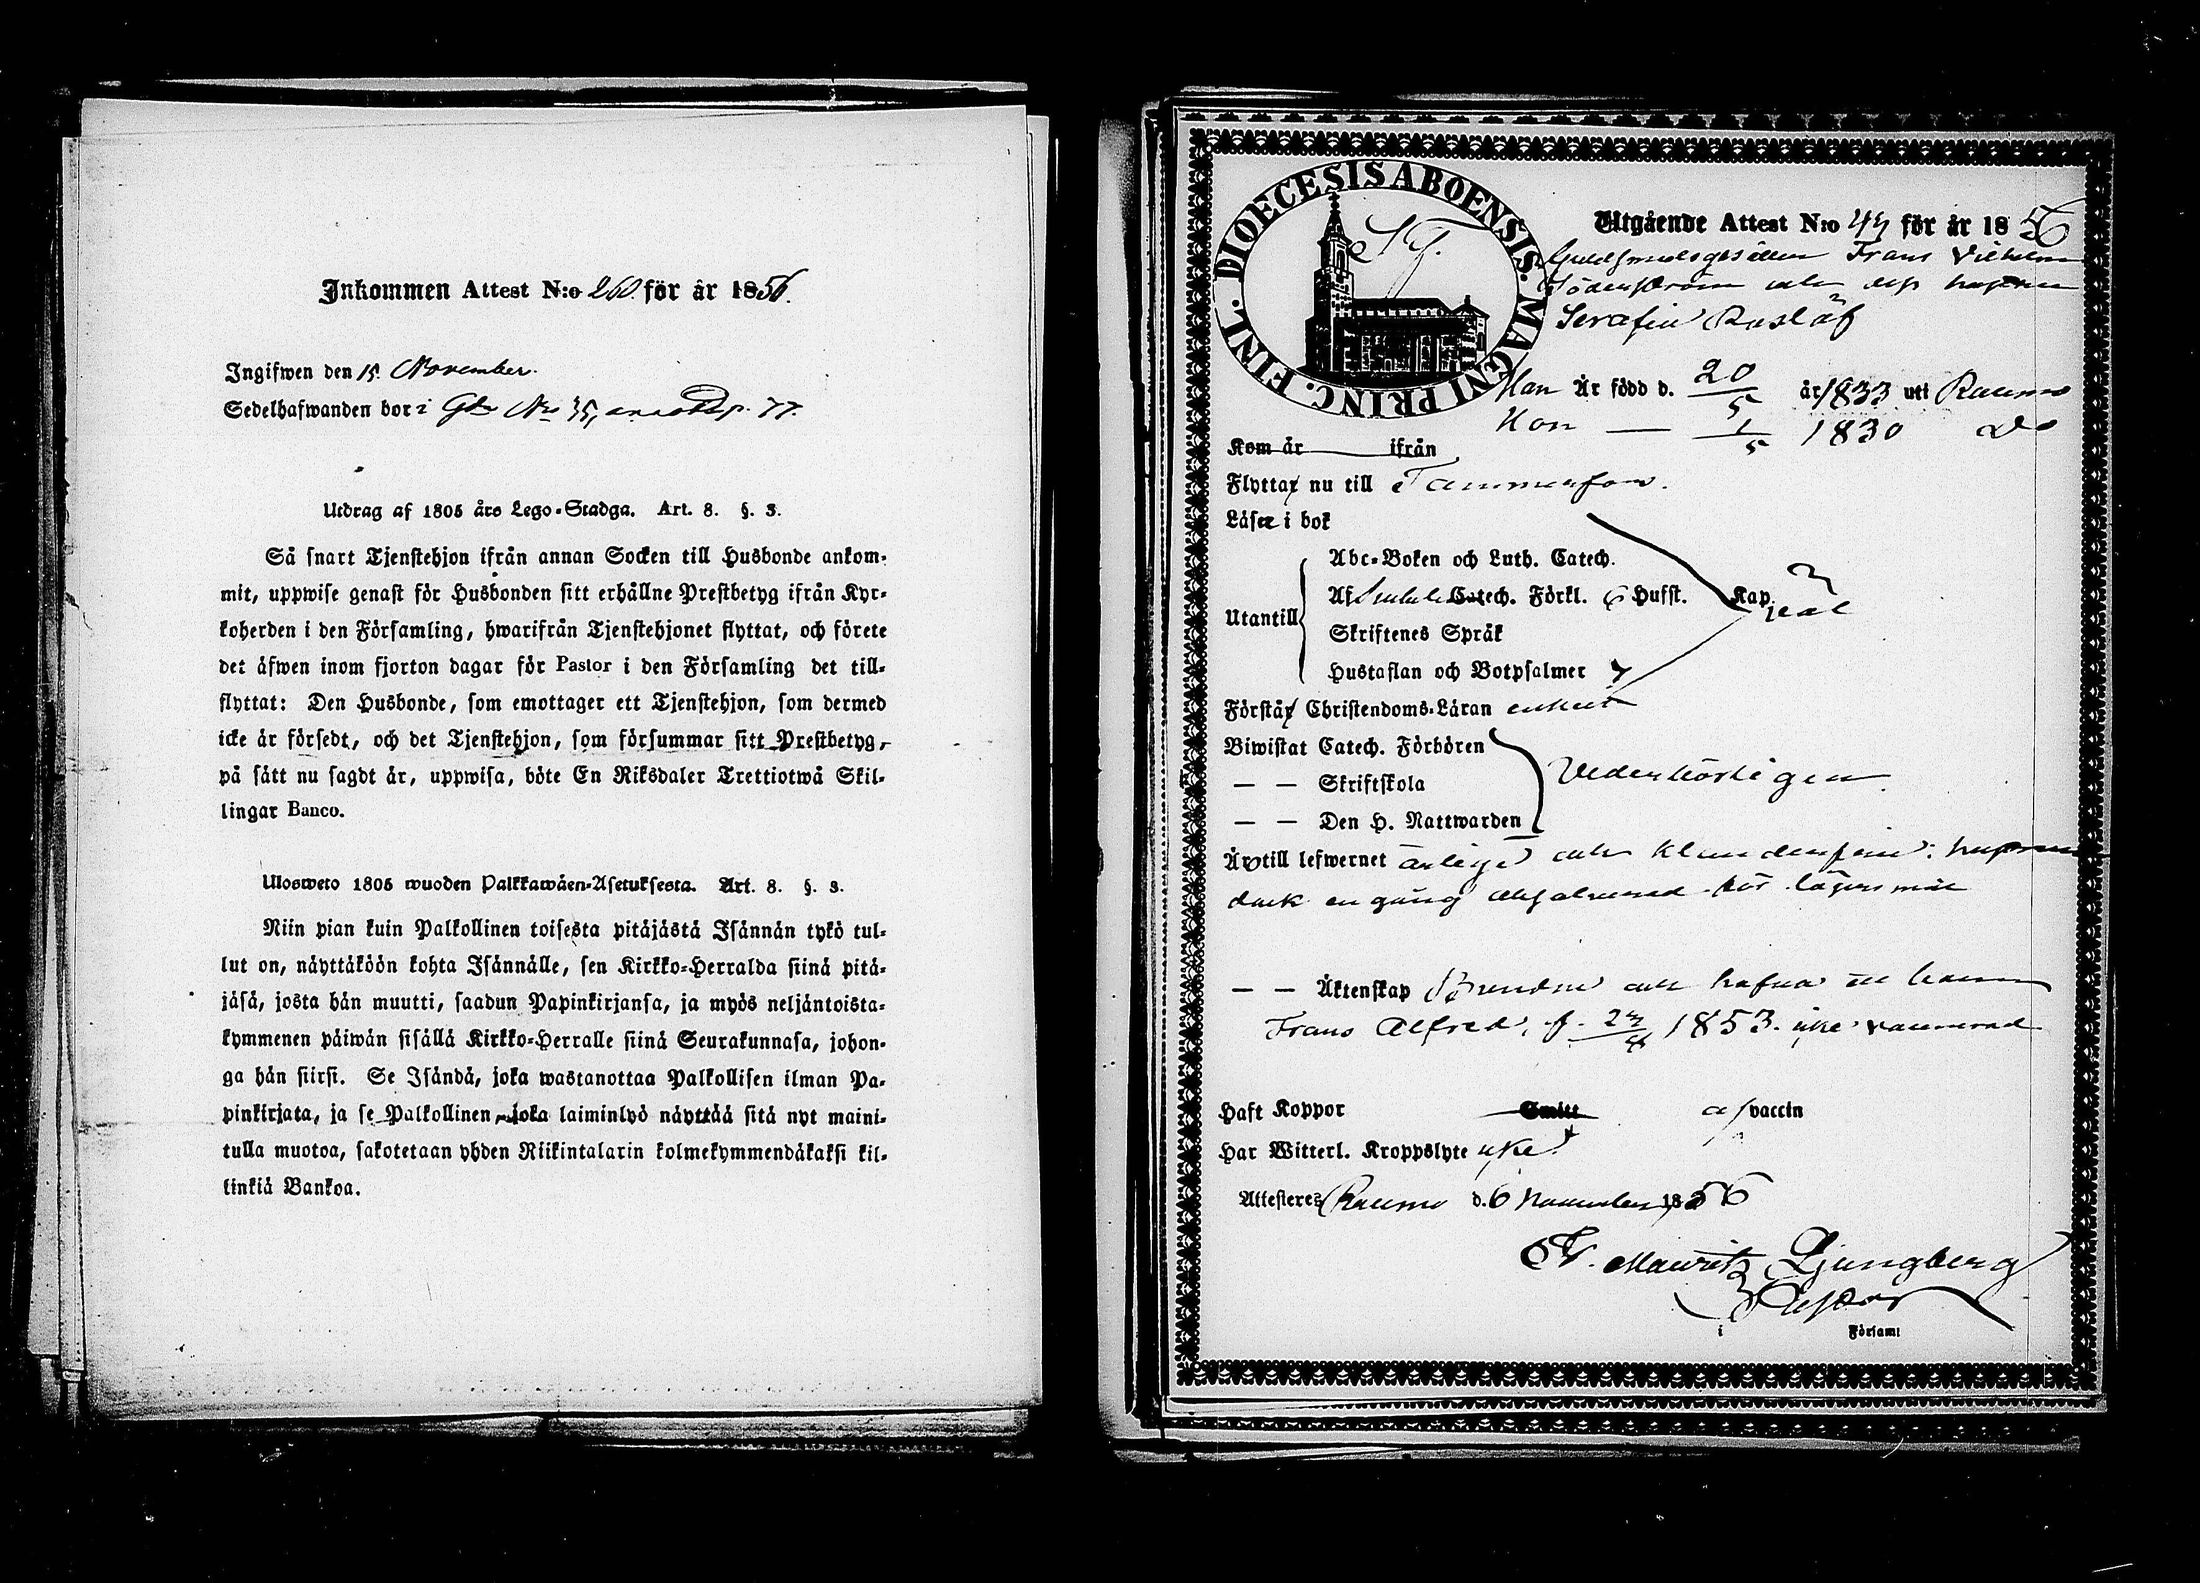 Inkommen Attest N:o 260 för år 1856.
Ingifwen den 15 November.
Sedelhafwanden bor i Gln No 35, annot. p. 77.
Utdrag af 1805 års Lego-Stadga. Art. 8. §. 3.
Så snart Tjenstehjon ifrån annan Socken till Husbonde ankom-
mit, uppwise genast för Husbonden sitt erhållne Prestbetyg ifrån Kyr-
koherden i den Församling, hwarifrån Tjenstehjonet flyttat, och förete
det äfwen inom fjorton dagar för Pastor i den Församling det till-
flyttat: Den Husbonde, som emottager ett Tjenstehjon, som dermed
icke är försedt, och det Tjenstehjon, som försummar sitt Prestbetyg,
på sätt nu sagdt är, uppwisa, böte En Riksdaler Trettiotwå Skil-
lingar Banco.
Ulosweto 1805 wuoden Palkkawäen-Asetuksesta. Art. 8. §. 3.
Niin pian kuin Palkollinen toisesta pitäjästä Isännän tykö tul-
lut on, näyttäköön kohta Isännälle, sen Kirkko-Herralda siinä pitä-
jäsä, josta hän muutti, saadun Papinkirjansa, ja myös neljäntoista-
kymmenen päiwän sisällä Kirkko-Herralle siinä Seurakunnasa, johon-
ga hän siirsi. Se Isändä, joka wastanottaa Palkollisen ilman Pa-
pinkirjata, ja se Palkollinen, joka laiminlyö näyttää sitä nyt maini-
tulla muotoa, sakotetaan yhden Riikintalarin kolmekymmendäkaksi kil-
linkiä Bankoa.
DIOECESIS ABOENSIS. MAGNI PRINC. FINL.
Utgående Attest N:o 43 för år 1856
Guldsmedsgesällen Frans Vilhelm
Söderström och dess hustru
Serafin Rosläf
Han Är född d. 20/5 år 1833 uti Raumo
Hon — 1/5 1830 do
Kom år ifrån
Flyttar nu till Tammerfors.
Läser i bok
Abc-Boken och Luth. Catech.
Utantill Af Catech. Förkl. Hufst. Kap.
Skriftenes Språk
Hustaflan och Botpsalmer 7
Förstår Christendoms-Läran enkelt
Biwistat Catech. Förhören
— — Skriftskola Vederbörligen.
— — Den H. Nattwarden
Är till lefwernet ärlige och klanderfrie; hustrun
dock en gång för lägersmål
— — Äktenskap och hafva en
Frans Alfred, f. 1853. icke vaccinerad
Haft Koppor Smitt af vaccin
Har Witterl. Kroppslyte icke
Attesteres Raumo d. 6 November 1856
Fr. Mauritz Ljungberg
Pastor
i Församl